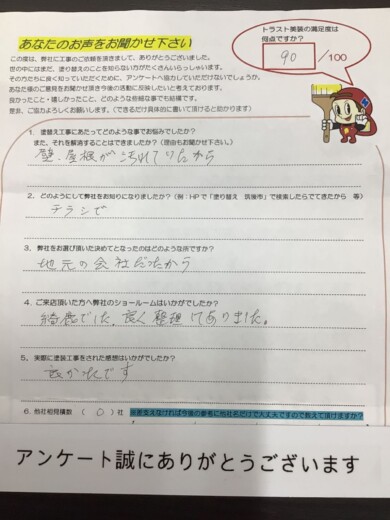 あなたのお声をお聞かせ下さい
トラスト美装の満足度は
何点ですか?
90 /100
この度は、弊社に工事のご依頼を頂きまして、ありがとうございました。
世の中にはまだ、塗り替えのことを知らない方がたくさんいらっしゃいます。
その方たちに良く知っていただくために、アンケートへ協力していただけないでしょうか。
あなた様のご意見をお聞かせ頂き今後の活動に反映したいと考えております。
良かったこと・嬉しかったこと、どのような些細な事でも結構です。
是非、ご協力よろしくお願いします。(できるだけ具体的に書いて頂けると助かります)
1. 塗替え工事にあたってどのような事でお悩みでしたか?
また、それを解消することはできましたか?(理由もお聞かせ下さい。)
壁・屋根が汚れてりたから
2. どのようにして弊社をお知りになりましたか?(例:HPで「塗り替え 筑後市」で検索したらでてきたから 等)
チラシで
3. 弊社をお選び頂いた決めてとなったのはどのような所ですか?
地元の会社だったから
4. ご来店頂いた方へ弊社のショールームはいかがでしたか?
綺麗でした、良く整理してありました。
5. 実際に塗装工事をされた感想はいかがでしたか?
良かったです
6. 他社相見積数 ( 0 ) 社 ※差支えなければ今後の参考に他社名だけで大丈夫ですので教えて頂けますか?
アンケート誠にありがとうございます